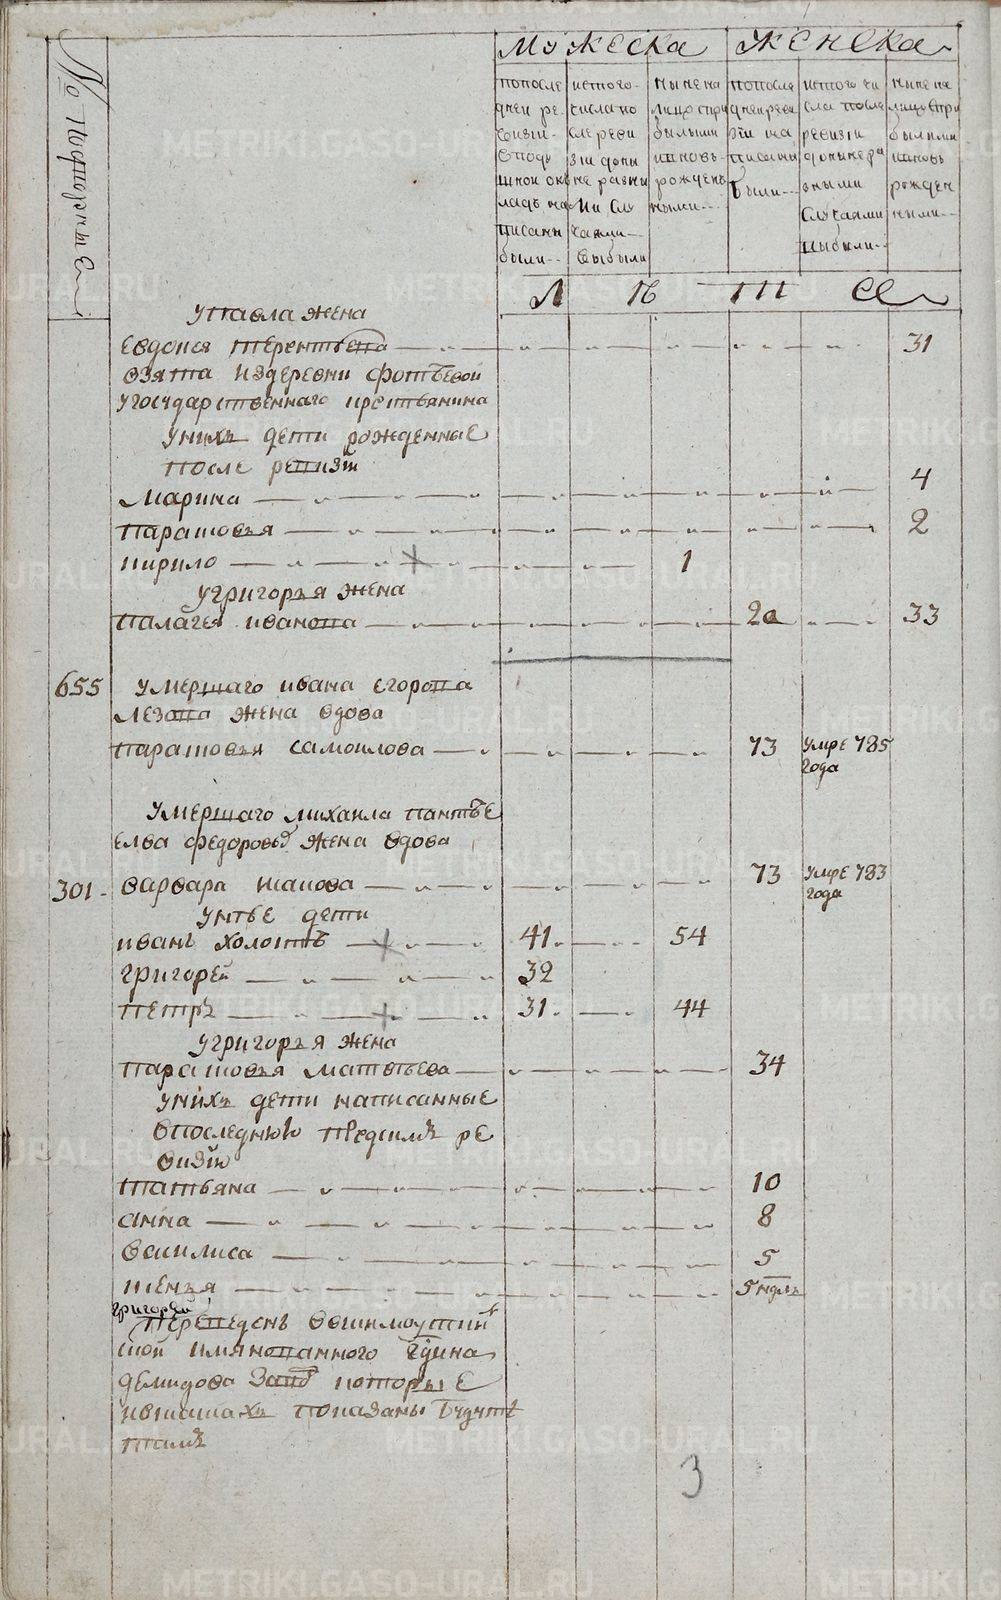 № подворные
мужеска женска
попосле
дней ре-
визии
в подушной окладъ на
писаны
были--
исъ того-
числа по
сле реви
зии до ны
не разны
ми слу
чаями-
выбыли
ныне на
лицо с при
былыми
и вновь
рожден
ными--
попосле
дней реви
зии на
писаны
были--
исъ того чи
сла после
ревизии
до ныне ра
зными
случаями
выбыли--
ныне на
лицо с при
былыми
и вновь
рожден
ными--
у павла жена
евдокия терентьева 31
взята из деревни фотеевой
у государственнаго крестьянина
у нихъ дети рожденные
после ревизии
марина 4
парасковья 2
кирило 1
у григорья жена
палагея иванова 20 33
655 умершаго ивана егорова
жена вдова
парасковья самоилова 73 умре 785
года
умершаго михаила пантѣ
елѣва федоровы жена вдова
301- варвара 73 умре 783
года
у нѣе дети
иванъ холостъ 41 54
григорей 32
петръ 31 44
у григорья жена
парасковья матвѣева 34
у нихъ дети написанные
в последнюю предъ симъ ре
визию
татьяна 10
анна 8
василиса 5
5 нділь
григорей
переведенъ
имянованного
демидова завод которые
показаны будутъ
тамъ
3
METRIKI.GASO-URAL.RU